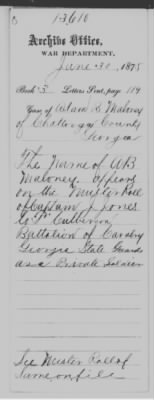 13,610
Archive Office,
WAR DEPARTMENT,
June 30, 1875
Book 3 Letters Sent, page 119
Case of Adam R Maloney
of Chattooga County
Georgia
The Name of AB
Maloney. Appears
on the Muster Roll
of Captain J Jones
Co
Battalion of Cavalry
Georgia State Guards
as a Private Soldier
See Muster Roll of
Same on file